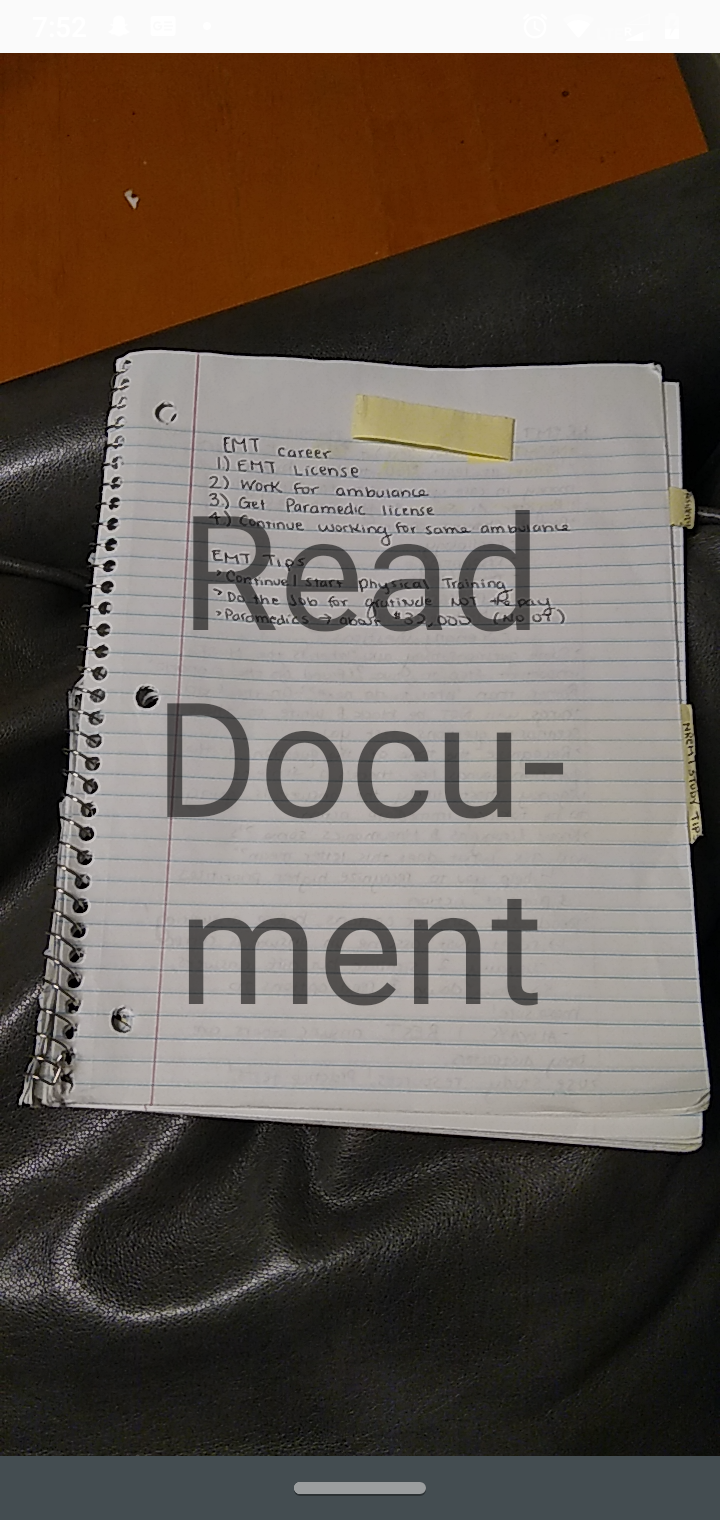 7:52
EMT career
1) EMT License
2) Work for ambulance
3.) Get Paramedic license
4.) Continue working for same ambulance
EMT Tips
> Continue/start Physical Training
> Do the job for gratitude NOT the pay
> Paramedics → about $32,000 (No OT)
NREMT STUDY TIPS
Read
Docu-
ment